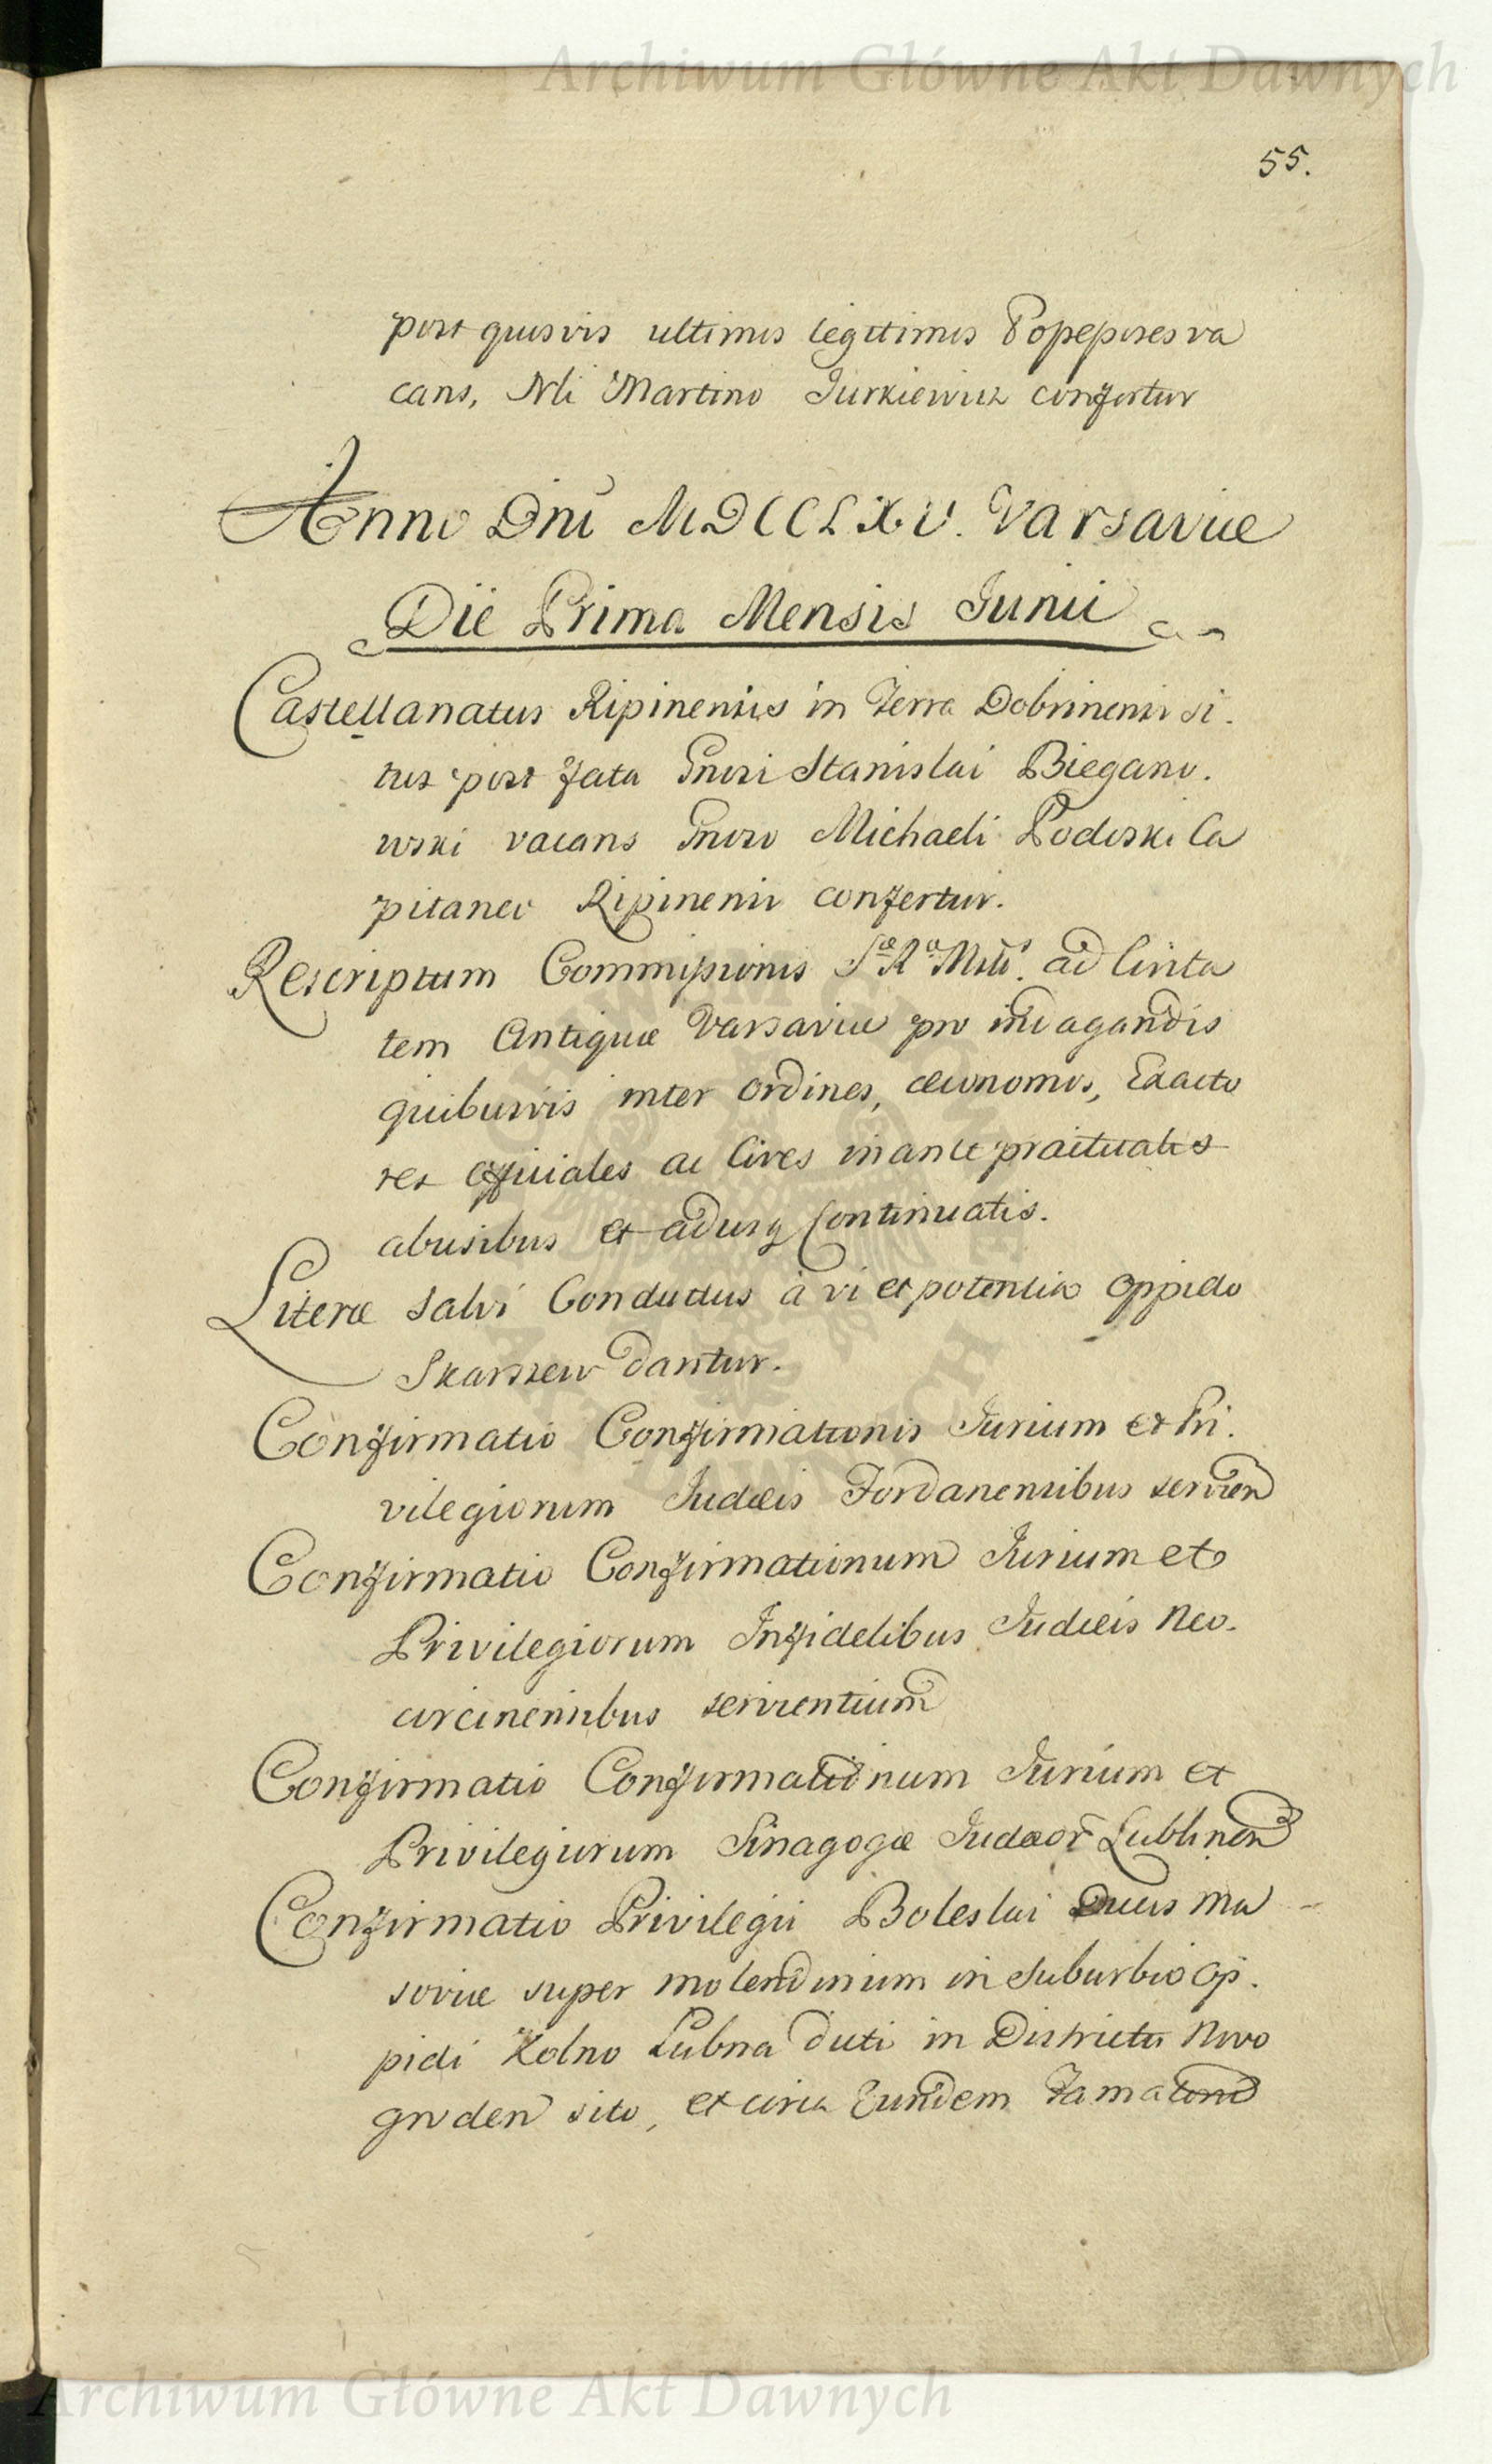 Archiwum Główne Akt Dawnych
55.
post quosvis ultimos legitimos Possessores va
cans, Nli Martino Jurkiewicz confertur
Anno Dni MDCCLXV. Varsaviæ
Die Prima Mensis Junii
Castellanatus Ripinensis in Terra Dobrinensi si.
tus post fata Gnosi Stanislai Biegano.
wski vacans Gnoso Michaeli Podoski Ca
pitaneo Ripinensi confertur.
Rescriptum Commissionis Sæ Ræ Mttis. ad Civita
tem Antiquæ Varsaviæ pro indagandis
quibusvis inter ordines, œconomos, Exacto
res officiales ac Cives in ante practicatis
abusibus et adusq continuatis.
Literæ Salvi Conductus à vi et potentia oppido
Skarszew dantur.
Confirmatio Confirmationis Jurium et Pri.
vilegiorum Judæis Fordanensibus servien
Confirmatio Confirmationum Jurium et
Privilegiorum Infidelibus Judæis Neo.
circinensibus servientium
Confirmatio Confirmationum Jurium et
Privilegiorum Sinagogæ Judæor Lublinen
Confirmatio Privilegii Boleslai Ducis Ma
soviæ super molendinum in suburbio Op.
pidi Kolno Lubna dicti in Districtu Novo
groden sito, et circa Eundem
Archiwum Główne Akt Dawnych